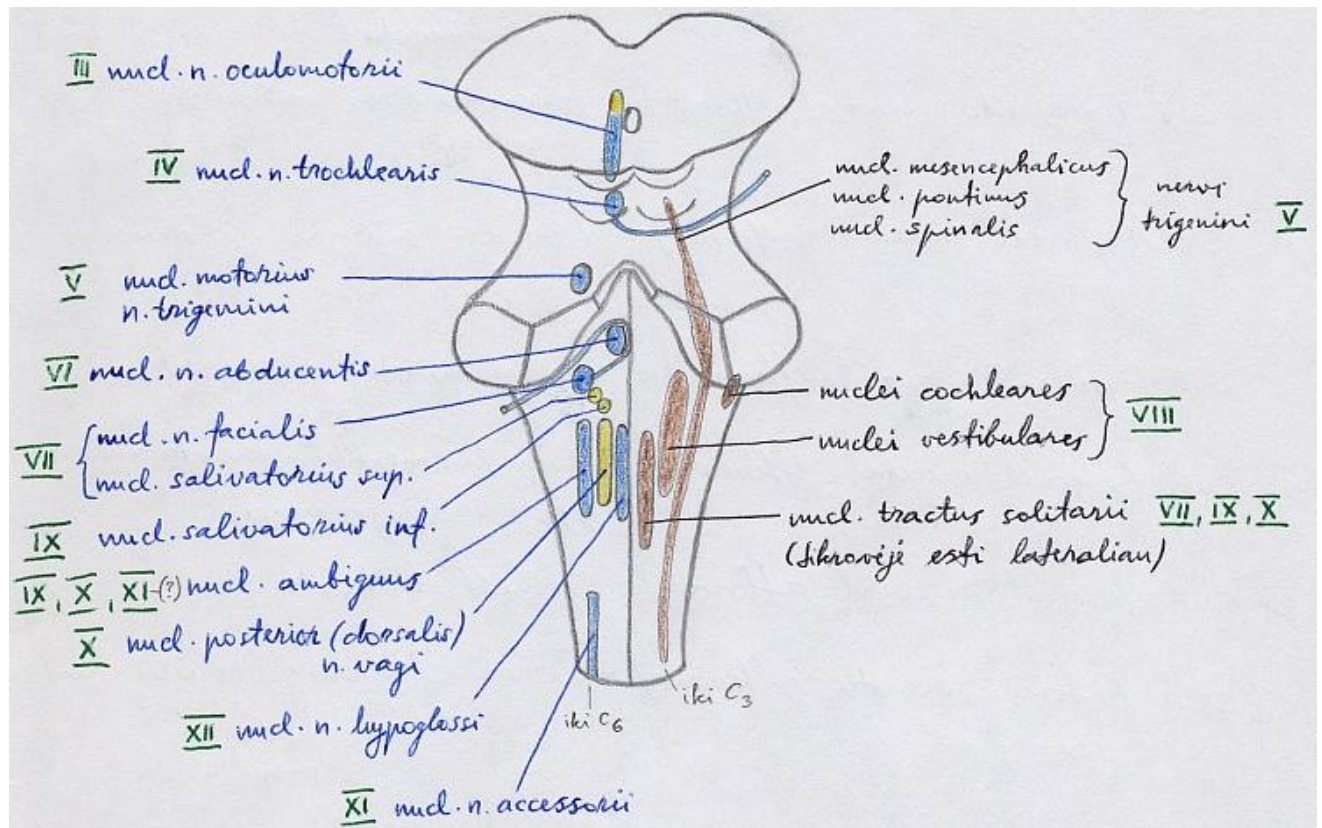 III nucl. n. oculomotorii
IV nucl. n. trochlearis
V nucl. motorius
n. trigemini
VI nucl. n. abducentis
VII nucl. n. facialis
nucl. salivatorius sup.
IX nucl. salivatorius inf.
IX, X, XI-(?) nucl. ambiguus
X nucl. posterior (dorsalis)
n. vagi
XII nucl. n. hypoglossi
XI nucl. n. accessorii
iki C6
iki C3
nucl. mesencephalicus
nucl. pontinus
nucl. spinalis
nervi
trigemini V
nuclei cochleares
nuclei vestibulares
VIII
nucl. tractus solitarii VII, IX, X
(tikrovėje esti lateraliau)